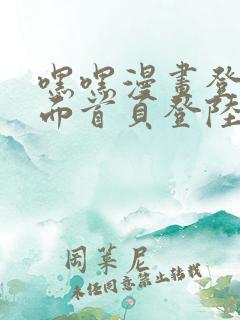 嘿嘿漫畫登
而首頁登陸
岡萊尼
未经同意禁止转载